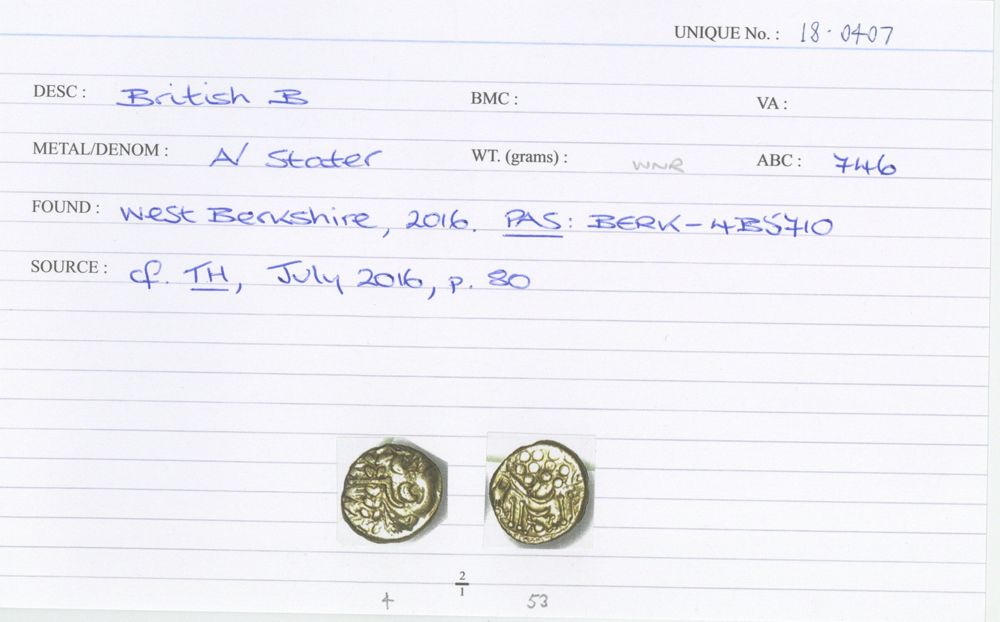 UNIQUE No. : 18·0407
DESC : British B BMC : VA :
METAL/DENOM : A/ Stater WT. (grams) : WNR ABC : 746
FOUND : West Berkshire, 2016. PAS: BERK-4B5710
SOURCE : cf. TH, July 2016, p. 80
2
1
4 53